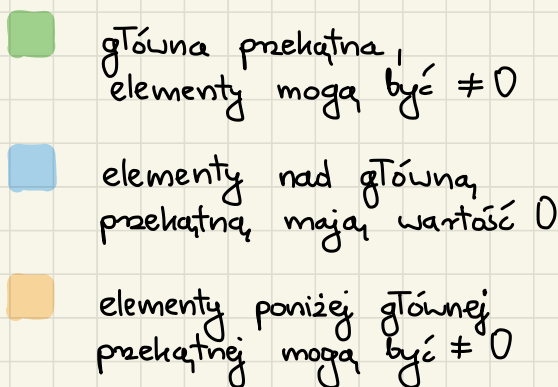 główna przekątna,
elementy mogą być ≠ 0
elementy nad główną
przekątną mają wartość 0
elementy poniżej głównej
przekątnej mogą być ≠ 0